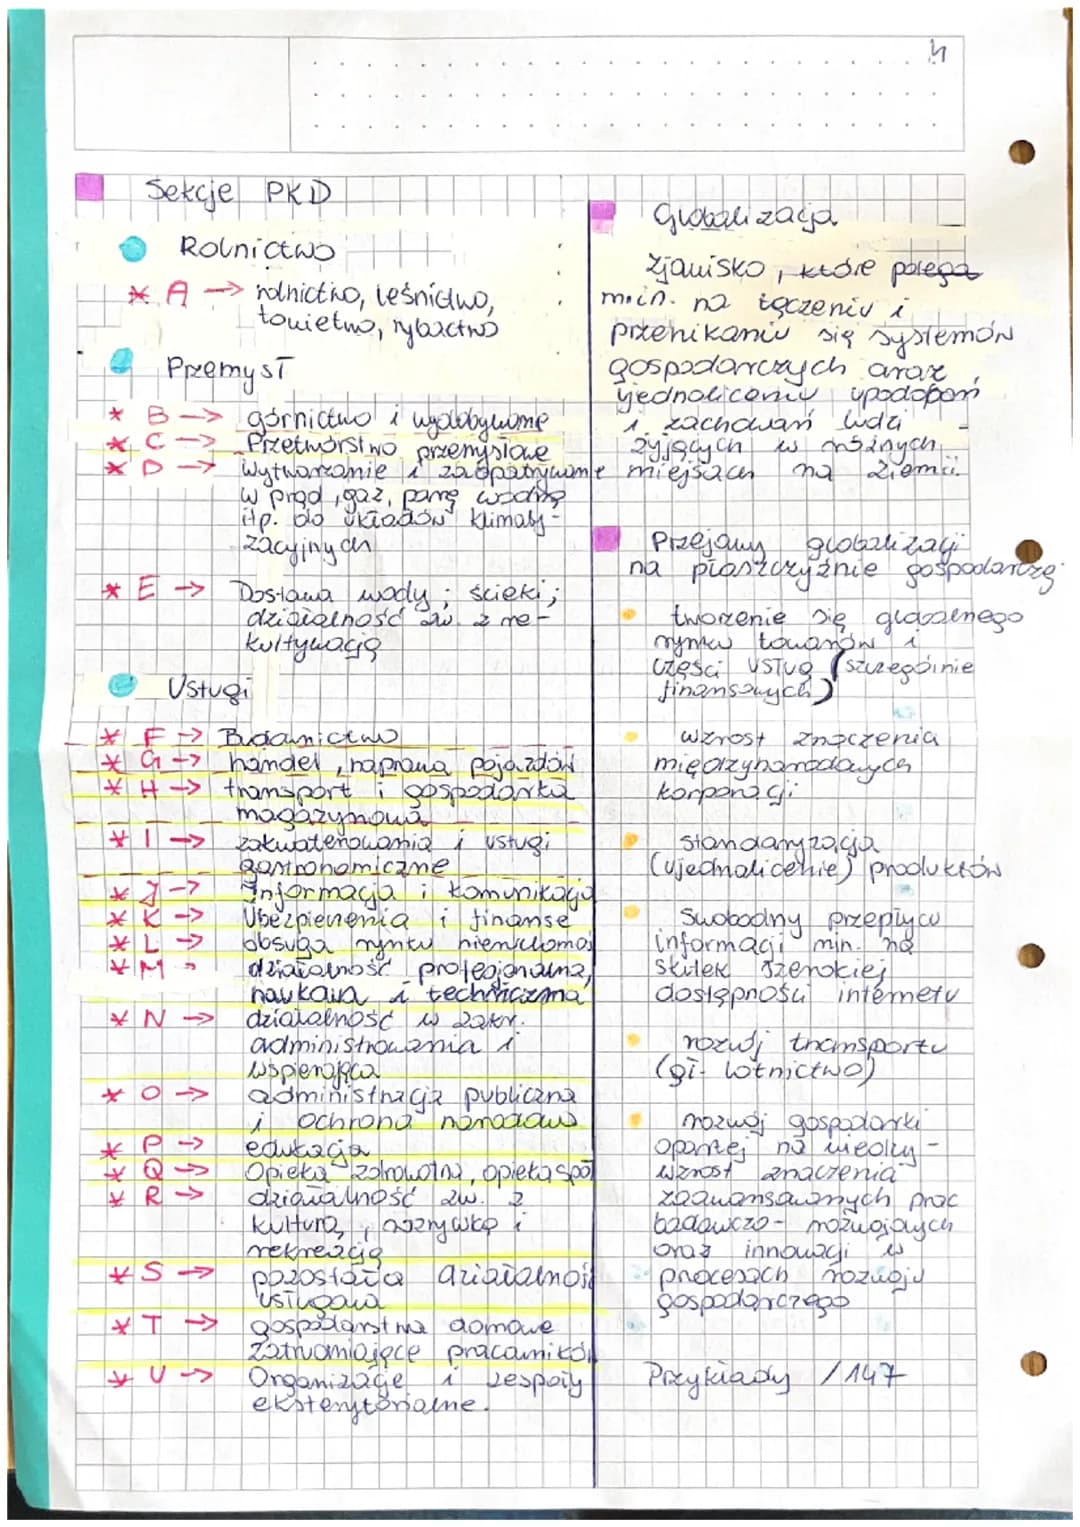 4
Sekcje PKD
Rolnictwo
* A → rolnictwo, leśnictwo,
łowiectwo, rybactwo
Przemysł
* B → górnictwo i wydobywanie
* C → Przetwórstwo przemysłowe
* D → Wytwarzanie i zaopatrywanie
w prąd, gaz, parę wodną
itp. do układów klimaty-
zacyjnych
* E → Dostawa wody; ścieki;
działalność zw. z re-
kultywacją
Usługi
* F → Budownictwo
* G → handel, naprawa pojazdów
* H → transport i gospodarka
magazynowa
* I → zakwaterowania i usługi
gastronomiczne
* J → Informacja i komunikacja
* K → Ubezpieczenia i finanse
* L → obsuga rynku nieruchomoś
* M → działalność profesjonalna,
naukowa i techniczna
* N → działalność w zakr.
administrowania i
wspierająca
* O → administracja publiczna
i ochrona narodowa
* P → edukacja
* Q → Opieka zdrowotna, opieka społ
* R → działalność zw. z
kulturą, rozrywką i
rekreacją
* S → pozostała działalność
usługowa
* T → gospodarstwa domowe
zatrudniające pracowników
* U → Organizacje i zespoły
eksterytorialne.
Globalizacja
Zjawisko, które polega
m.in. na łączeniu i
przenikaniu się systemów
gospodarczych oraz
ujednoliceniu upodobań
i zachowań ludzi
żyjących w różnych
miejscach na Ziemi.
Przejawy globalizacji
na płaszczyźnie gospodarczej
tworzenie się globalnego
rynku towarów i
części usług (szczególnie
finansowych)
wzrost znaczenia
międzynarodowych
korporacji
standaryzacja
(ujednolicenie) produktów
Swobodny przepływ
informacji min. na
skutek szerokiej
dostępności internetu
rozwój transportu
(gł. lotnictwo)
rozwój gospodarki
opartej na wiedzy -
wzrost znaczenia
zaawansowanych prac
badawczo-rozwojowych
oraz innowacji w
procesach rozwoju
gospodarczego
Przykłady /147